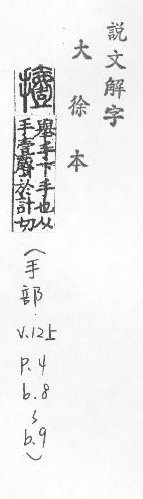 説文解字
大徐本
撎
舉手下手也从
手壹聲於計切
(手部.v.12上P.4b.8~b.9)